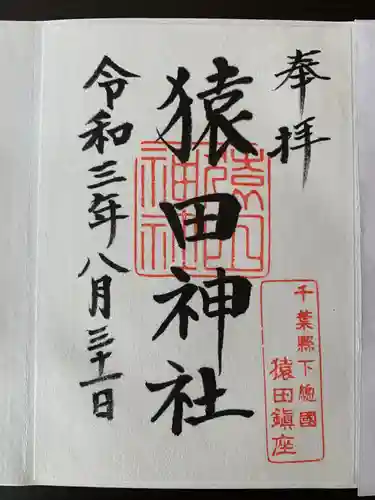 奉拝
千葉縣下総國
猿田鎮座
猿田神社
猿田神社
令和三年八月三十一日